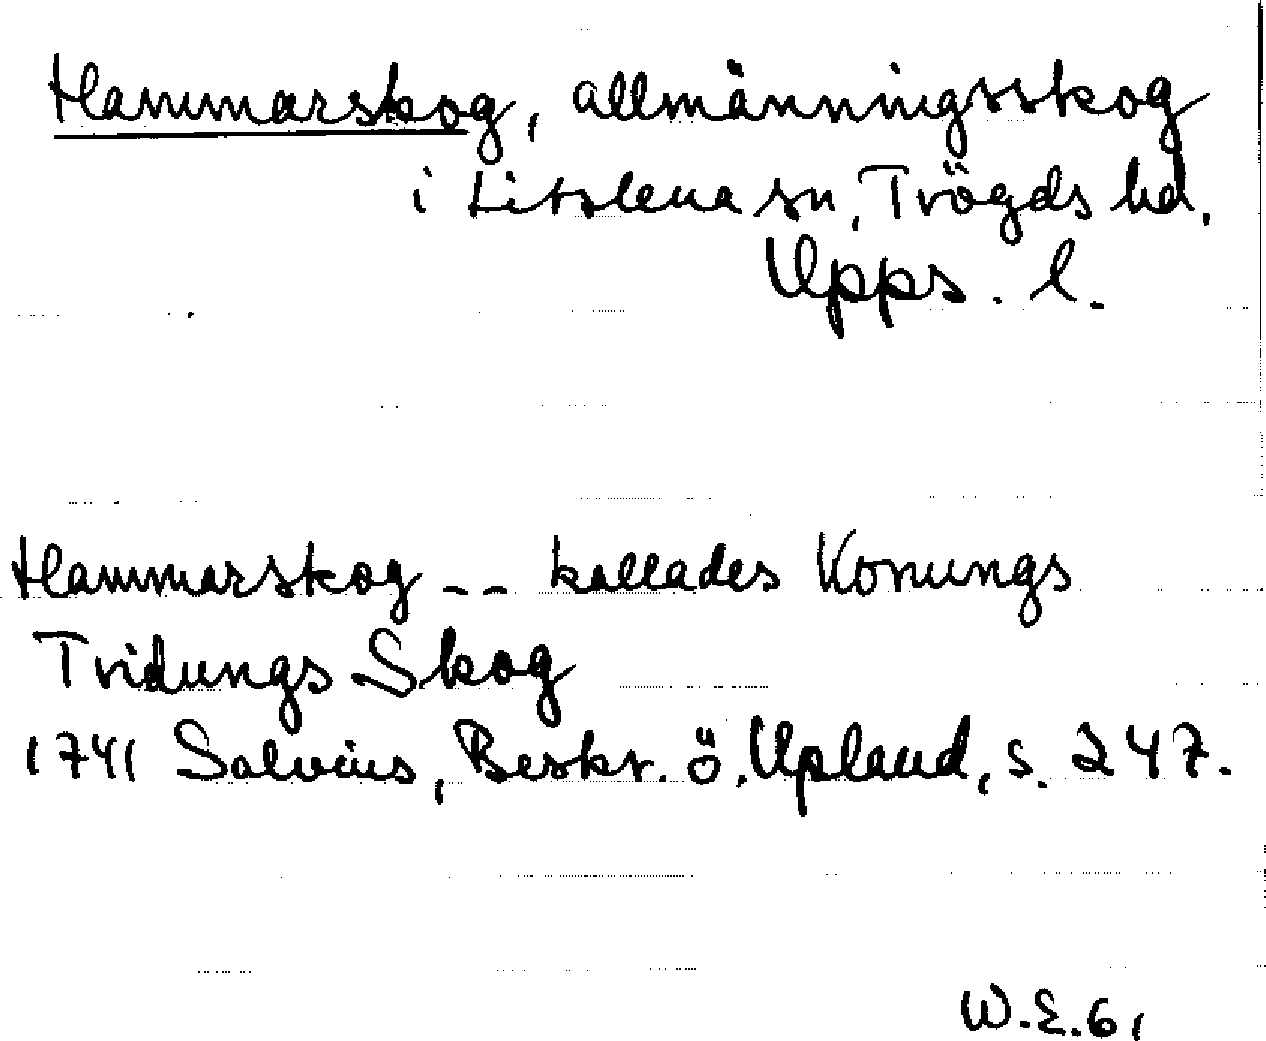 Hammarskog, allmänningsskog
i Litslena sn, Trögds hd.
Upps. l.
Hammarskog -- kallades Konungs
Tridungs Skog
1741 Salvius, Beskr. ö. Upland, s. 247.
W.E.61